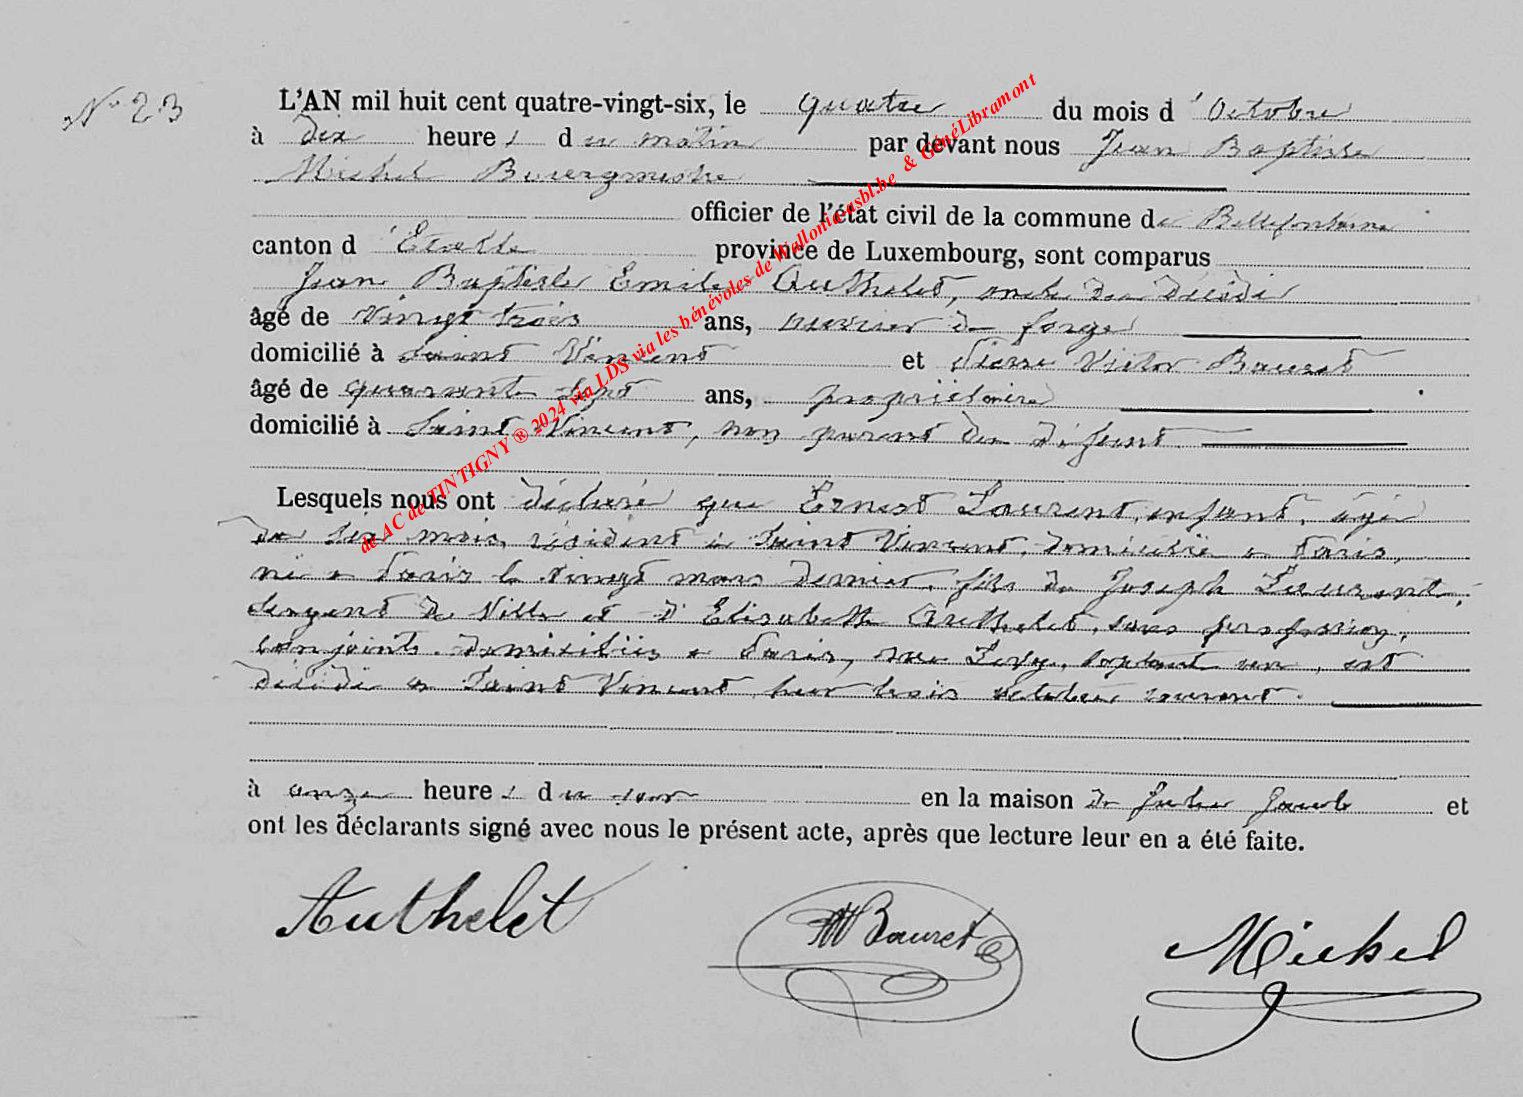 N° 23
L'AN mil huit cent quatre-vingt-six, le quatre du mois d'Octobre
à dix heures du matin par devant nous Jean Baptiste
Michel Bourgmestre
officier de l'état civil de la commune de Bellefontaine
canton d'Etalle province de Luxembourg, sont comparus
Jean Baptiste Emile Authelet, oncle du décédé
âgé de vingt trois ans, ouvrier de forges
domicilié à Saint Vincent et Pierre Victor Bauret
âgé de quarante sept ans, propriétaire
domicilié à Saint Vincent, non parent du défunt
Lesquels nous ont déclaré que Ernest Laurent, enfant, âgé
de six mois, résident à Saint Vincent, domicilié à Paris,
né à Paris le vingt mars dernier, fils de Joseph Laurent,
sergent de Ville et d'Elisabeth Authelet, sans profession,
conjoints domiciliés à Paris, rue septante un, est
décédé à Saint Vincent hier trois octobre courant.
à onze heures du soir en la maison de Jacob et
ont les déclarants signé avec nous le présent acte, après que lecture leur en a été faite.
Authelet
Bauret
Michel
de AC de TINTIGNY ® 2024 via LDS via les bénévoles de Wallonia-asbl.be & GénéLibramont